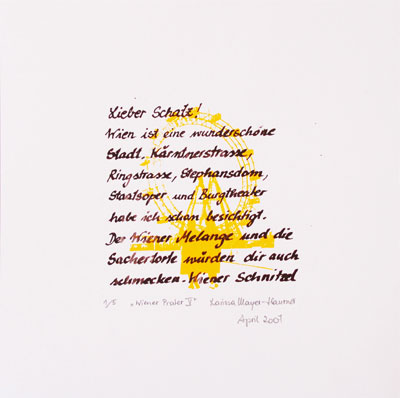 Lieber Schatz!
Wien ist eine wunderschöne
Stadt, Kärntnerstrasse,
Ringstrasse, Stephansdom,
Staatsoper und Burgtheater
habe ich schon besichtigt.
Der Wiener Melange und die
Sachertorte würden dir auch
schmecken. Wiener Schnitzel
1/5 „Wiener Prater IV"
April 2001